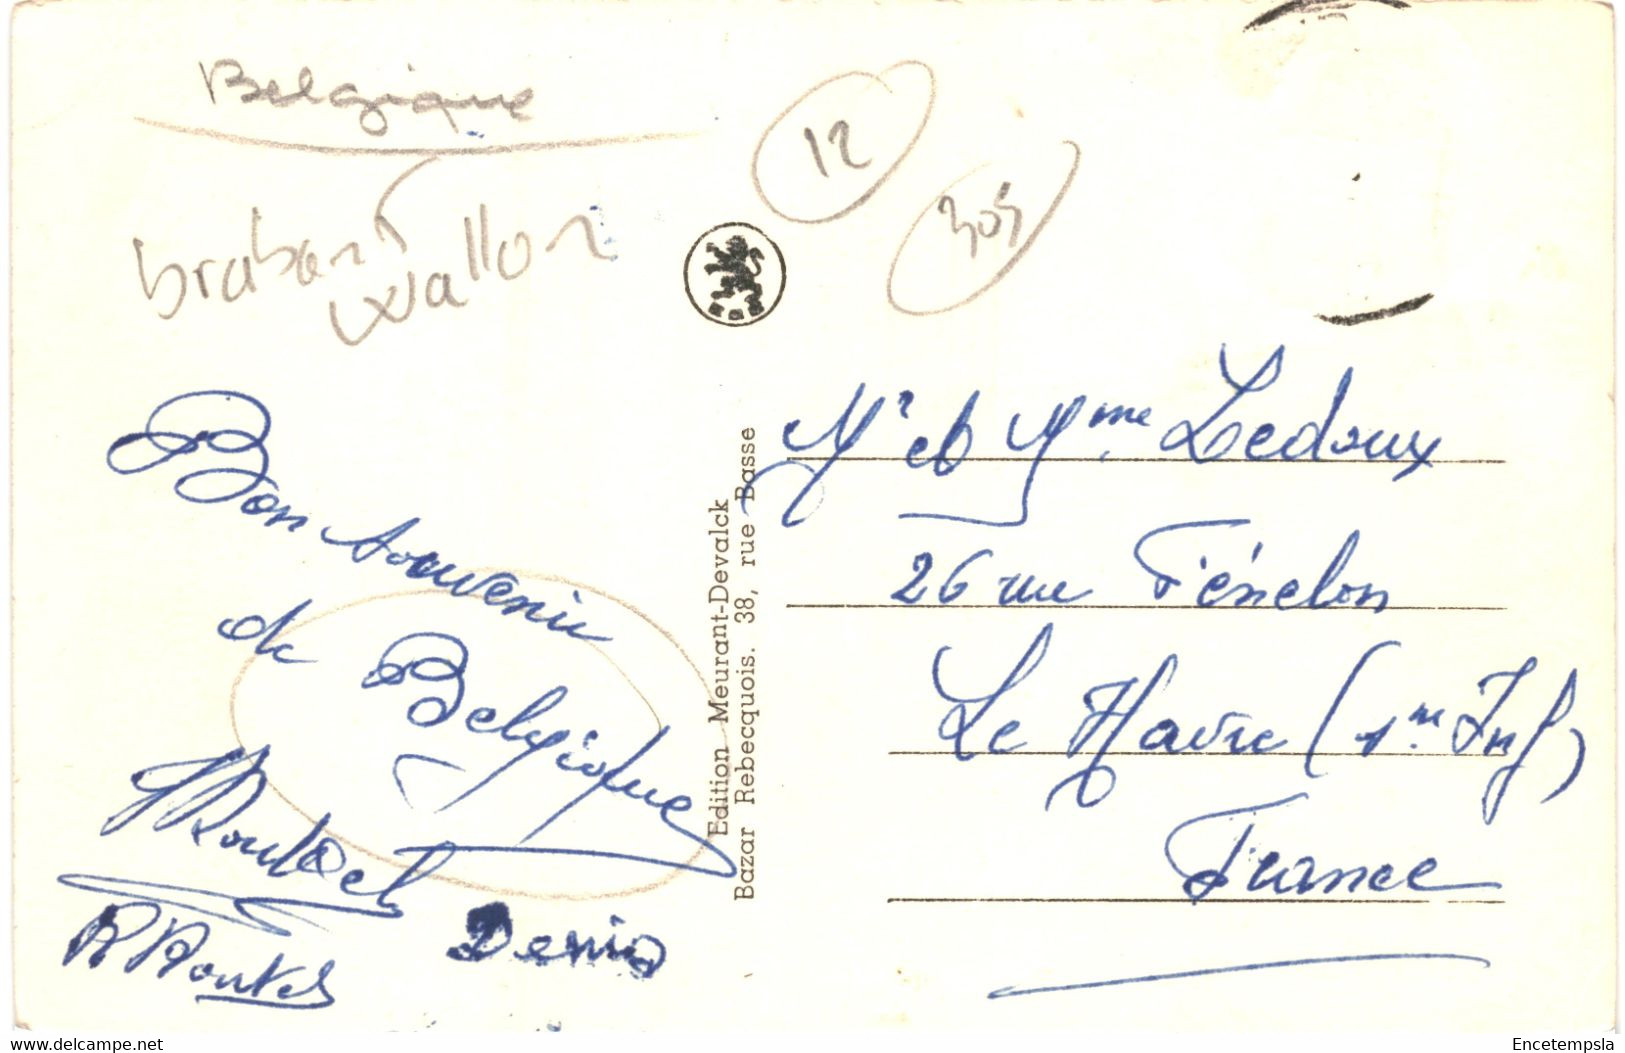 Belgique
brabant
wallon
12
305
Bon souvenir
de Belgique
Denis
Edition Meurant-Devalck
Bazar Rebecquois. 38, rue Basse
Mr et Mme Ledoux
26 rue Fénelon
Le Havre (Sne Inf)
France
www.delcampe.net
Encetempsla